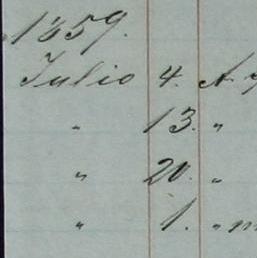 1859.
Julio 4. A
" 13. "
" 20. "
" 1. " m